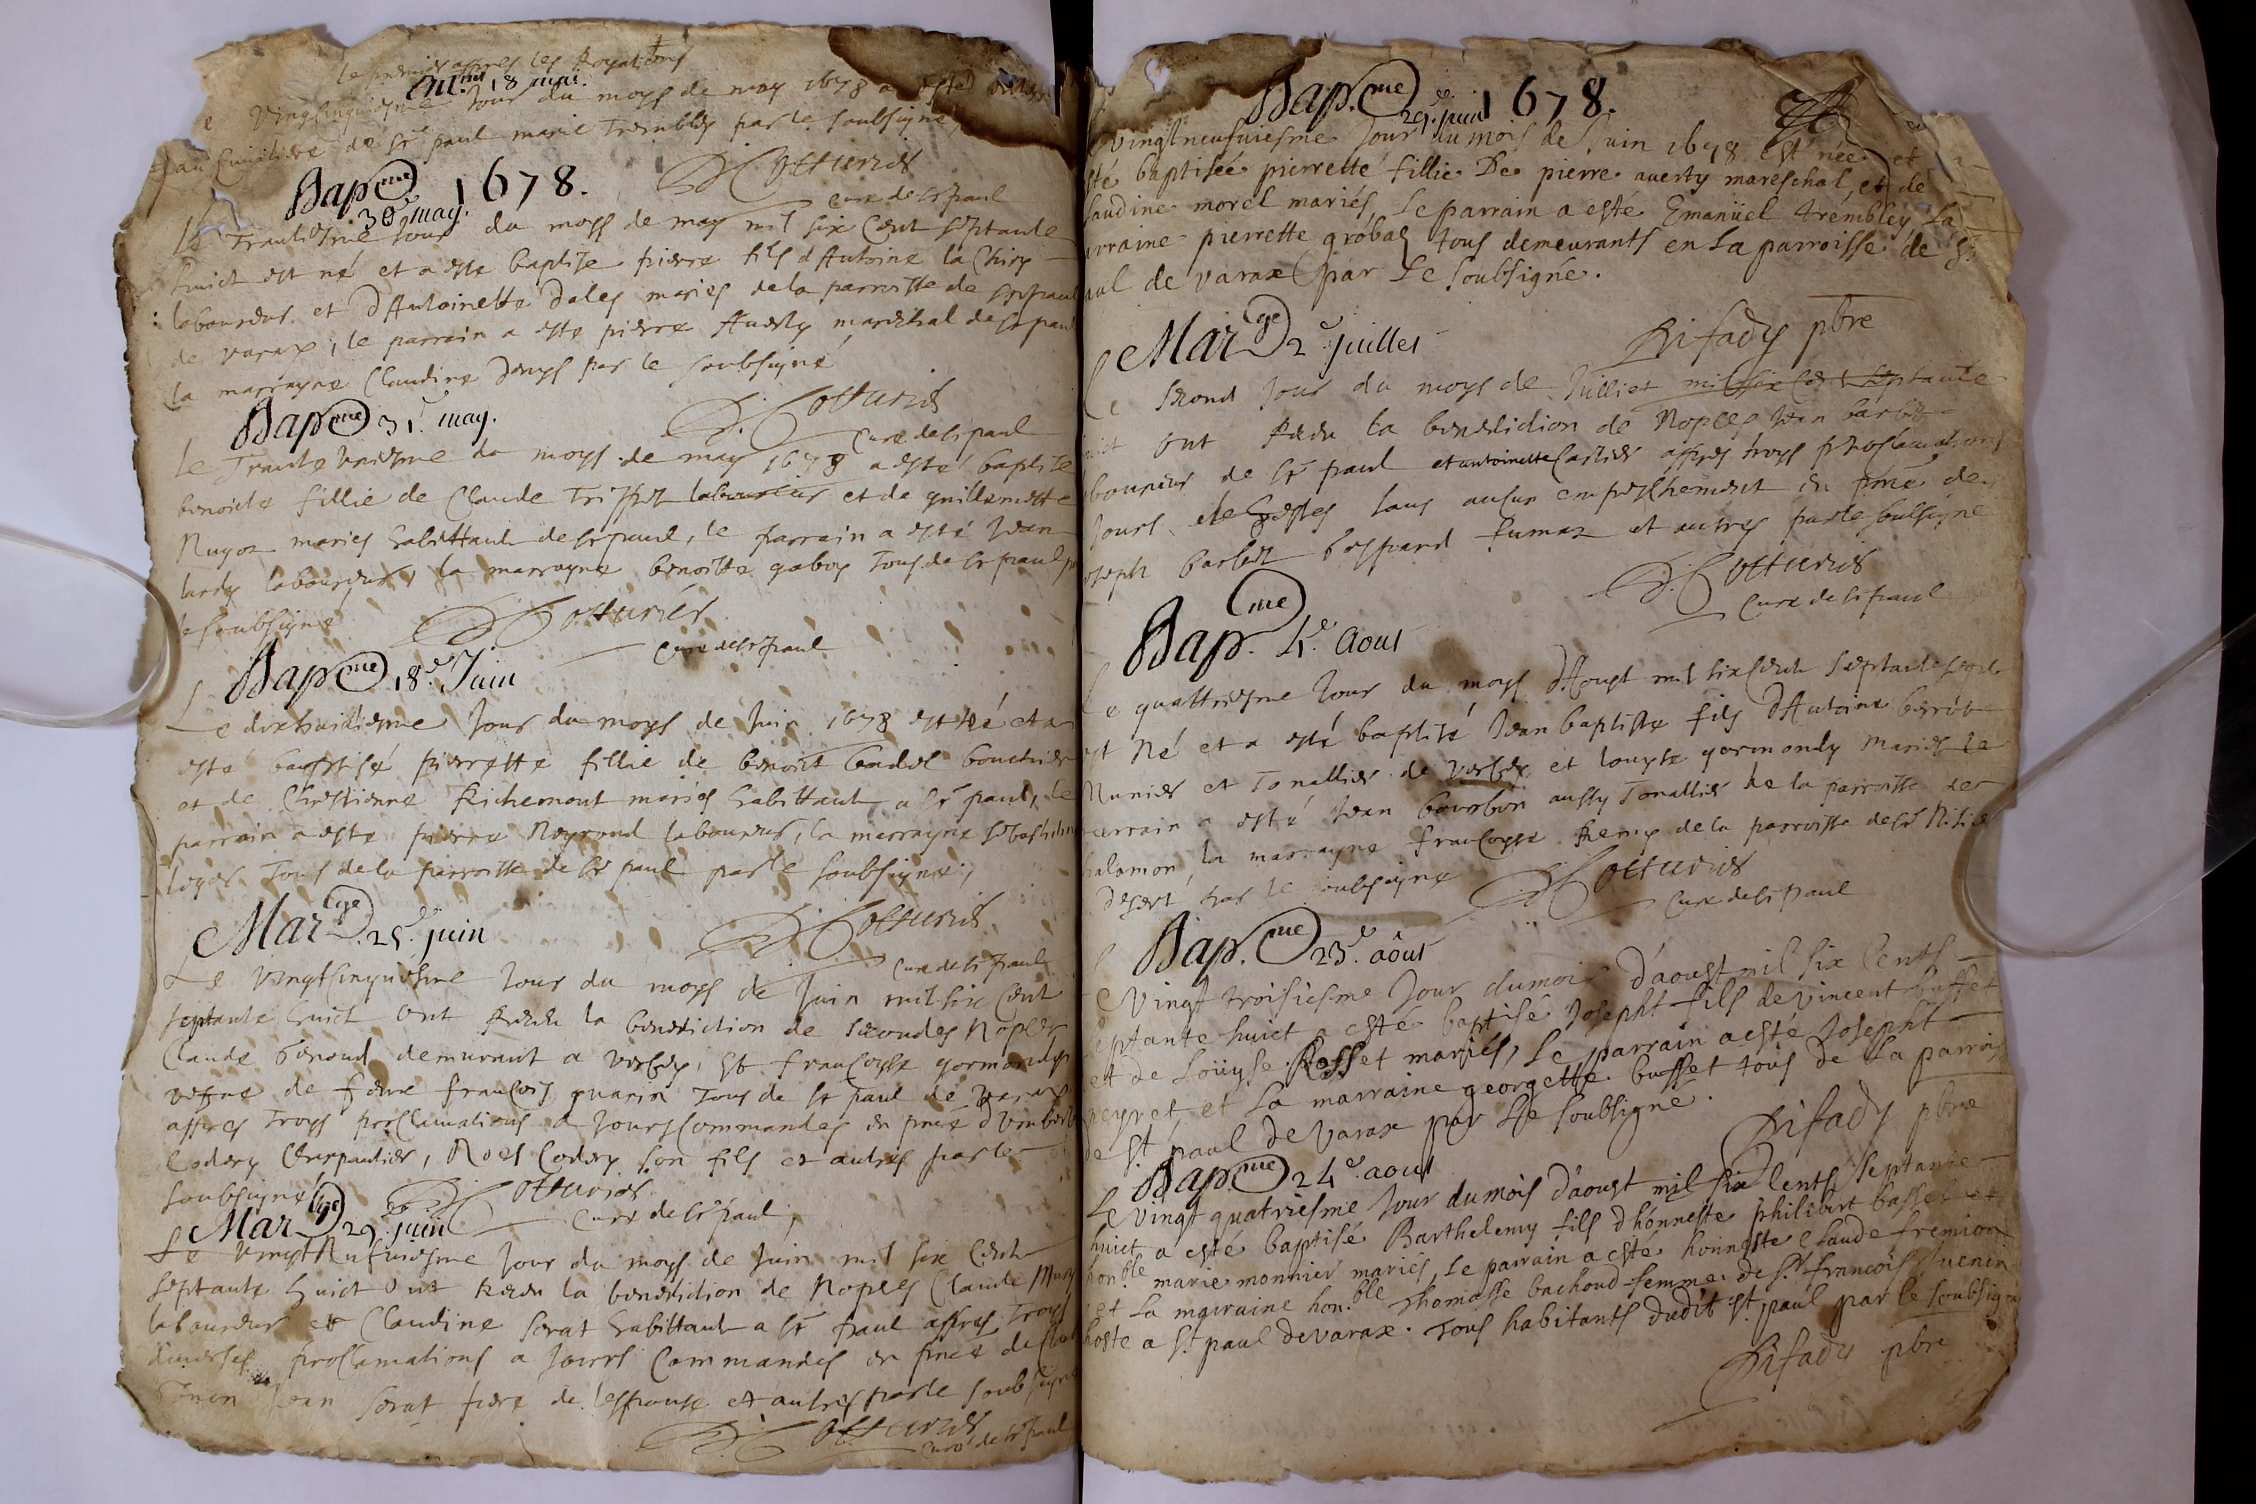 le premier appres les Rogations
Ent.mt 18 mai.
Vingtcinquiesme Jour du moys de may 1678 a esté
au Cimitiere de st paul marie Trembley par le soubsigné
D. Cotturier
cure de st paul
Bap.me 1678.
30e may.
Le Trantiesme Jour du moys de may mil six Cent septante
huict est né et a esté baptize pierre fils d'Antoine la Chiry
laboureur et d'Antoinette Dales mariés de la parroisse de st paul
de varax, le parrain a este pierre Auerty mareschal de st paul
la marrayne Claudine Denys par le soubsigné
D. Cotturier
Cure de st paul
Bap.me 31e may.
Le Trante uniesme du moys de may 1678 a esté baptize
benoiste fillie de Claude laboureur et de guillemette
Nugoz mariés habittants de st paul, le parrain a esté Jean
lardy laboureur, la marrayne benoitte gaboy Tous de st paul p
le soubsigné D. Cotturier
Cure de st paul
Bap.me 18e Juin
Le dixhuictiesme Jour du moys de Juin 1678 est né et a
esté baptisé pierrette fillie de benoist boucher
et de Chrestienne Richemont mariés habittants a st paul, le
parrain a este pierre Neyroud laboureur, la marrayne sebastienne
Tous de la parroisse de st paul par le soubsigné,
D. Cotturier
Cure de st paul
Mar.ge 25e juin
Le Vingtcinquiesme Jour du moys de Juin mil six Cent
septante huict ont Receu la benediction de secondes Nopces
Claude benoud demurant a versey, Et francoyse gormondy
vefue de feu francois guarin Tous de st paul de varax
appres troys proclamations a Jours Commandes en pnce d'humbert
Codery Charpantier, Noel Codery son fils et autres par le
soubsigné D. Cotturier
Cure de st paul,
Mar.ge 29e juin
Le vingt Neufuiesme Jour du moys de Juin mil six Cent
septante huict ont Receu la benediction de Nopces Claude
laboureur et Claudine serat habittants a st paul appres troys
diuerses proclamations a Jours Commandes en pnce de
Jean serat frere de l'espouse et autres par le soubsigné
D. Cotturier
cure de st paul
Bap.me 1678.
29e juin
vingt neufuiesme Jour du mois de Juin 1678 est née et
sté baptisée pierrette fillie De pierre auerty mareschal, et de
laudine morel mariés, Le parrain a esté Emanüel trembley La
arraine pierrette grobas tous demeurants en La parroisse de St
aul de varax par Le soubsigné.
Rifady pbre
Mar.ge 2e juillet
Le second Jour du moys de Juillet mil six Cent septante
uict ont Receu la benediction de Nopces Jean barbet
aboureur de st paul et antoinette Cartier appres troys proclamations
Jours de Festes sans aucun empeschement en pnce de
oseph barbet gaspard fumaz et autres par le soubsigne
D. Cotturier
Cure de st paul
Bap.me 4e Aout
Le quattriesme Jour du moys d'Aoust mil six Cent septante huict
est Né et a esté baptisé Jean baptiste fils d'Antoine
Munier et Tonallier de versey et louyse gormondy mariés le
parrain a esté Jean bourbon aussy Tonallier de la parroisse de
halamon, la marrayne francoyse Remy de la parroisse de st Nisier
le desert par le soubsigne D. Cotturier
Cure de st paul
Bap.me 23e aôut
Le Vingt troisiesme Jour du mois d'aoust mil six Cents
septante huict a esté baptisé Joseph fils de Vincent buffet
et de Loüyse Rosset mariés, Le parrain a esté Joseph
neyret et La marraine georgette buffet tous de La parroisse
de St paul de varax par Le soubsigné.
Rifady pbre
Bap.me 24e aout
Le Vingt quatriesme Jour du mois d'aoust mil six Cents septante
huict a esté baptisé Barthelemy fils d'honneste philibert basset et
hon.ble marie monnier mariés, Le parrain a esté honneste Claude fremion
et La mairaine hon.ble Thomasse bachoud femme de Sr francois Juenin
hoste a St paul de varax. Tous habitants dudit St paul par le soubsigné
Rifady pbre